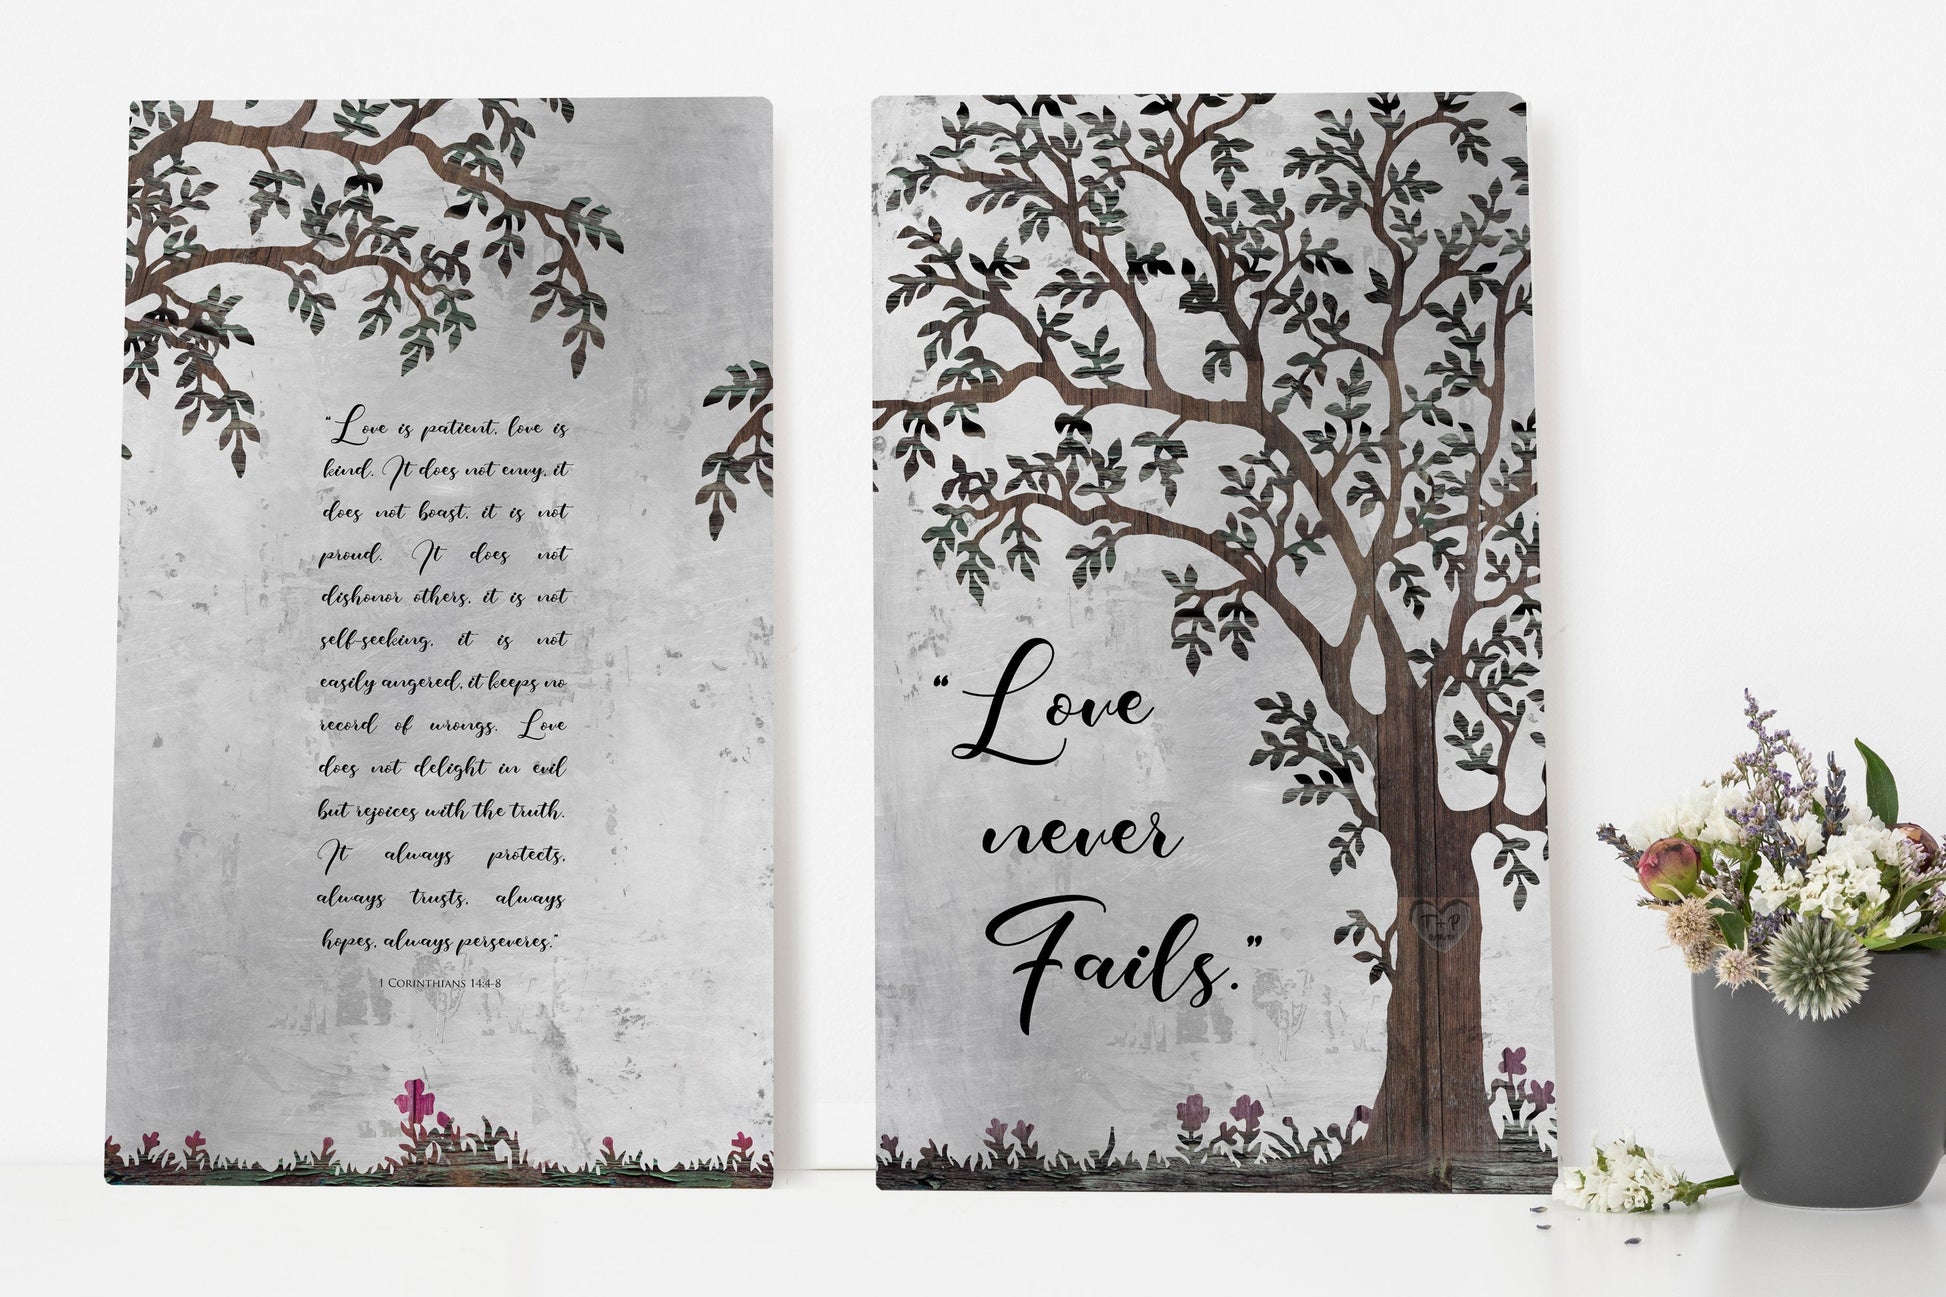 "Love is patient, love is
kind. It does not envy, it
does not boast, it is not
proud. It does not
dishonor others, it is not
self-seeking, it is not
easily angered, it keeps no
record of wrongs. Love
does not delight in evil
but rejoices with the truth.
It always protects,
always trusts, always
hopes, always perseveres."
1 Corinthians 14:4-8
"Love
never
Fails."
T + P